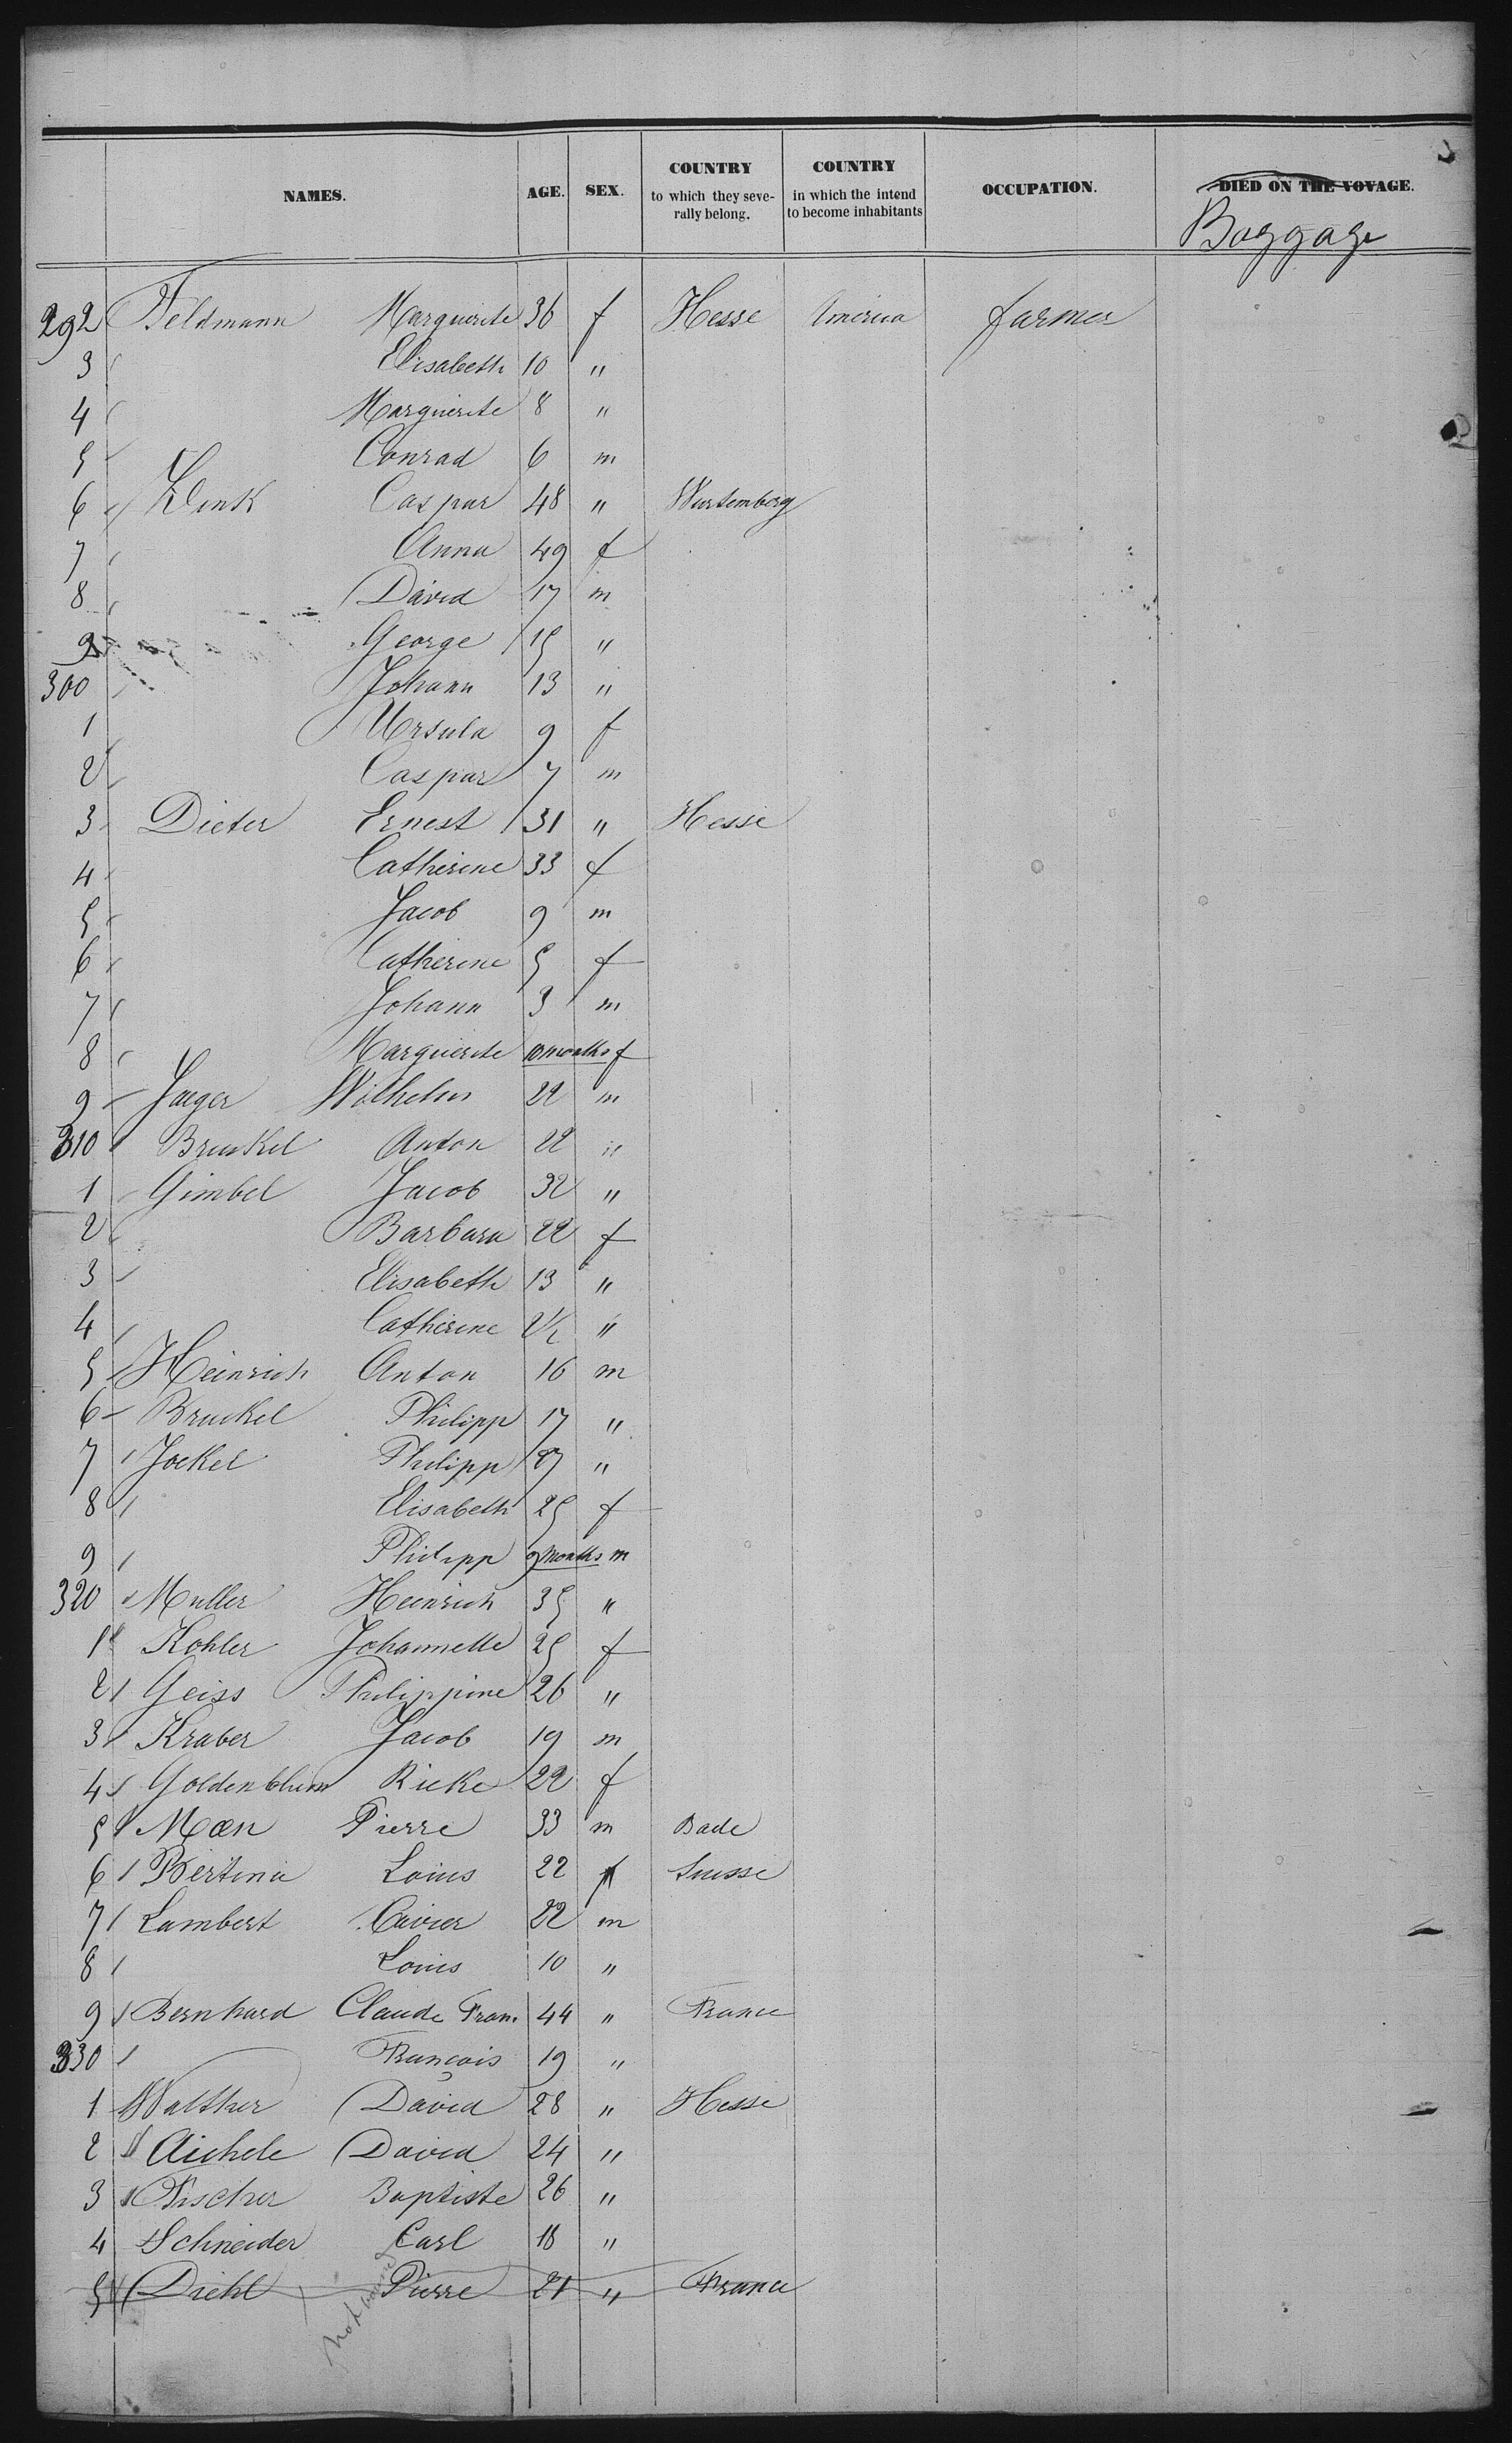 NAMES. AGE. SEX. COUNTRY to which they seve- rally belong. COUNTRY in which the intend to become inhabitants OCCUPATION. DIED ON THE VOYAGE.
Baggage
292 Feldmann Marguerite 36 f Hesse America farmer
3 Elisabeth 10 "
4 Marguerite 8 "
5 Conrad 6 m
6 Klink Caspar 48 " Wurtemberg
7 Anna 49 f
8 David 17 m
9 George 15 "
300 Johann 13 "
1 Ursula 9 f
2 Caspar 7 m
3 Dieter Ernest 31 " Hesse
4 Catherine 33 f
5 Jacob 9 m
6 Catherine 5 f
7 Johann 3 m
8 Marguerite 10 months f
9 Jaeger Wilhelm 22 m
310 Brukel Anton 22 "
1 Gimbel Jacob 32 "
2 Barbara 22 f
3 Elisabeth 13 "
4 Catherine "
5 Heinrich Anton 16 m
6 Bruckel Philipp 17 "
7 Jockel Philipp 27 "
8 Elisabeth 25 f
9 Philipp 9 months m
320 Muller Heinrich 35 "
1 Kohler Johannette 25 f
2 Geiss Philippine 26 "
3 Kraber Jacob 19 m
4 Goldenblum Ricke 22 f
5 Mæn Pierre 33 m Bade
6 Bertina Loius 22 Suisse
7 Lambert Cavier 22 m
8 Louis 10 "
9 Bernhard Claude Fran. 44 " France
330 François 19 "
1 Walther David 28 " Hesse
2 Aichele David 24 "
3 Fischer Baptiste 26 "
4 Schneider Carl 18 "
5 Diehl Pierre 21 " France
not